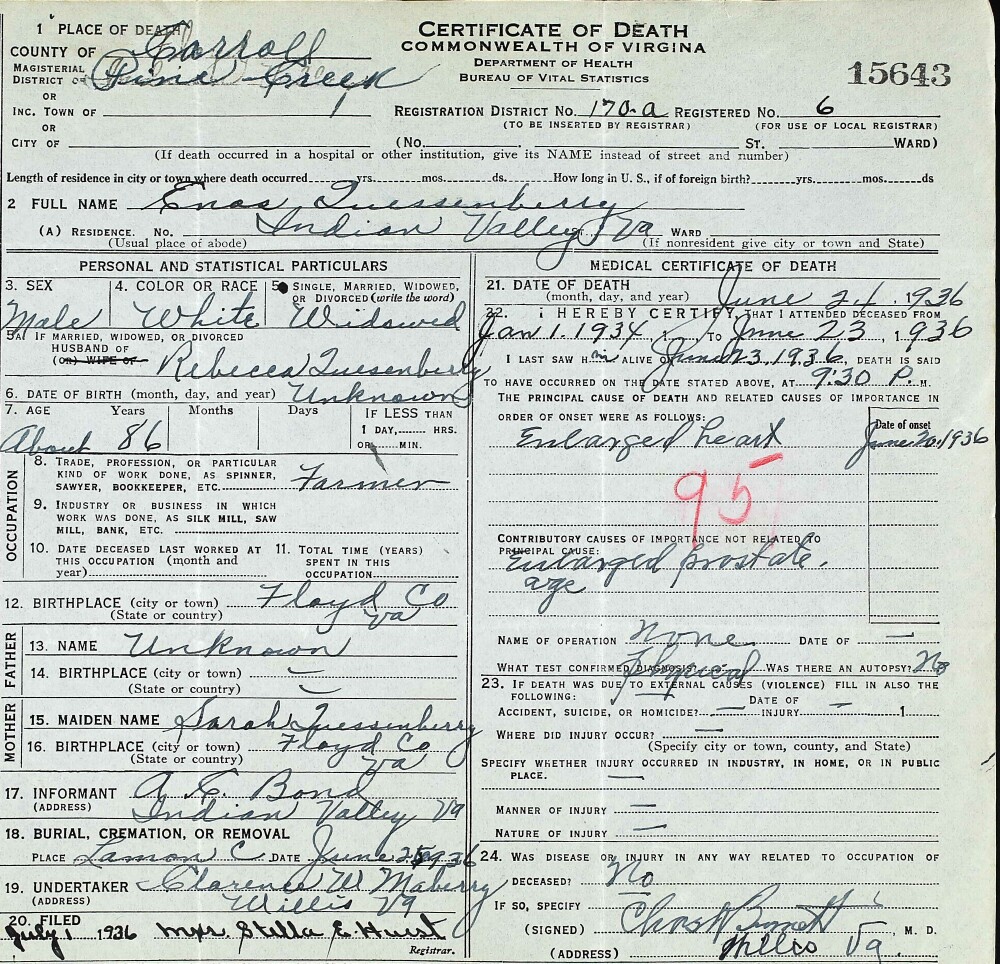 CERTIFICATE OF DEATH
COMMONWEALTH OF VIRGINIA
DEPARTMENT OF HEALTH
BUREAU OF VITAL STATISTICS
15643
1 PLACE OF DEATH
COUNTY OF Carroll
MAGISTERIAL DISTRICT OF Pine Creek
OR
INC. TOWN OF
OR
CITY OF
REGISTRATION DISTRICT NO. 170-a REGISTERED NO. 6
(TO BE INSERTED BY REGISTRAR) (FOR USE OF LOCAL REGISTRAR)
(No. ST. WARD)
(If death occurred in a hospital or other institution, give its NAME instead of street and number)
Length of residence in city or town where death occurred yrs. mos. ds. How long in U. S., if of foreign birth? yrs. mos. ds
2 FULL NAME Enos Quessenberry
(A) RESIDENCE. No. Indian Valley ST. Va WARD
(Usual place of abode) (If nonresident give city or town and State)
PERSONAL AND STATISTICAL PARTICULARS
3. SEX 4. COLOR OR RACE 5. SINGLE, MARRIED, WIDOWED, OR DIVORCED (write the word)
Male White Widowed
5A. IF MARRIED, WIDOWED, OR DIVORCED
HUSBAND OF
(OR) WIFE OF Rebecca Quesenberry
6. DATE OF BIRTH (month, day, and year) Unknown
7. AGE Years Months Days IF LESS THAN
1 DAY, HRS.
OR MIN.
About 86
OCCUPATION
8. TRADE, PROFESSION, OR PARTICULAR
KIND OF WORK DONE, AS SPINNER,
SAWYER, BOOKKEEPER, ETC. Farmer
9. INDUSTRY OR BUSINESS IN WHICH
WORK WAS DONE, AS SILK MILL, SAW
MILL, BANK, ETC.
10. DATE DECEASED LAST WORKED AT
THIS OCCUPATION (month and
year)
11. TOTAL TIME (YEARS)
SPENT IN THIS
OCCUPATION
12. BIRTHPLACE (city or town) Floyd Co
(State or country) Va
FATHER
13. NAME Unknown
14. BIRTHPLACE (city or town) —
(State or country) —
MOTHER
15. MAIDEN NAME Sarah Quessenberry
16. BIRTHPLACE (city or town) Floyd Co
(State or country) Va
17. INFORMANT Bond
(ADDRESS) Indian Valley Va
18. BURIAL, CREMATION, OR REMOVAL
PLACE DATE June 25 1936
19. UNDERTAKER Clarence W. Maberry
(ADDRESS) Willis Va
20. FILED
July 1 1936 Mrs. Stella E. Hurst
Registrar.
MEDICAL CERTIFICATE OF DEATH
21. DATE OF DEATH
(month, day, and year) June 1936
22. I HEREBY CERTIFY, THAT I ATTENDED DECEASED FROM
Jan 1. 1934 TO June 23, 1936
I LAST SAW Him ALIVE ON June 23, 1936, DEATH IS SAID
TO HAVE OCCURRED ON THE DATE STATED ABOVE, AT 9:30 P. M.
THE PRINCIPAL CAUSE OF DEATH AND RELATED CAUSES OF IMPORTANCE IN
ORDER OF ONSET WERE AS FOLLOWS:
Date of onset
Enlarged heart June 20, 1936
95
CONTRIBUTORY CAUSES OF IMPORTANCE NOT RELATED TO
PRINCIPAL CAUSE:
Enlarged prostate.
age
NAME OF OPERATION None DATE OF —
WHAT TEST CONFIRMED DIAGNOSIS Physical WAS THERE AN AUTOPSY? No
23. IF DEATH WAS DUE TO EXTERNAL CAUSES (VIOLENCE) FILL IN ALSO THE
FOLLOWING: —
ACCIDENT, SUICIDE, OR HOMICIDE? — DATE OF INJURY — 1
WHERE DID INJURY OCCUR? —
(Specify city or town, county, and State)
SPECIFY WHETHER INJURY OCCURRED IN INDUSTRY, IN HOME, OR IN PUBLIC
PLACE. —
MANNER OF INJURY —
NATURE OF INJURY —
24. WAS DISEASE OR INJURY IN ANY WAY RELATED TO OCCUPATION OF
DECEASED? No
IF SO, SPECIFY
(SIGNED) , M. D.
(ADDRESS) Willis Va